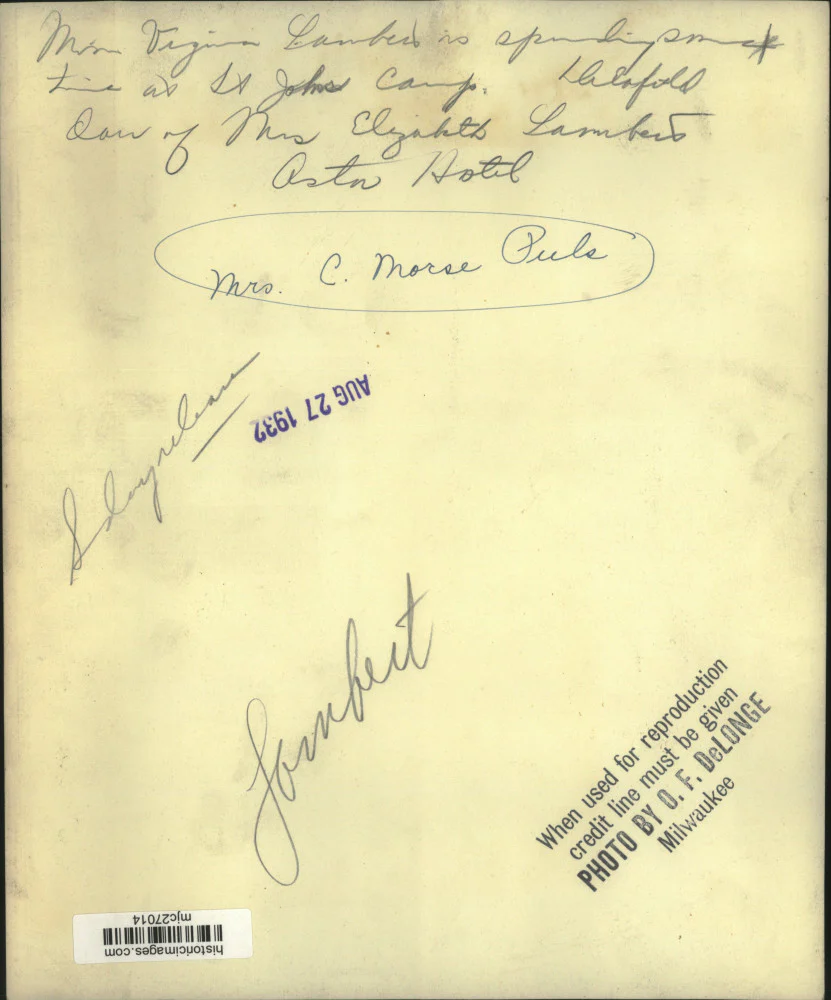 Miss Virginia Lambert is spending some
time at St Johns Camp. Delafield
Dau of Mrs Elizabeth Lambert
Astor Hotel
Mrs. C. Morse Puls
AUG 27 1932
Lambert
When used for reproduction
credit line must be given
PHOTO BY O. F. DeLONGE
Milwaukee
mjc27014
historicimages.com